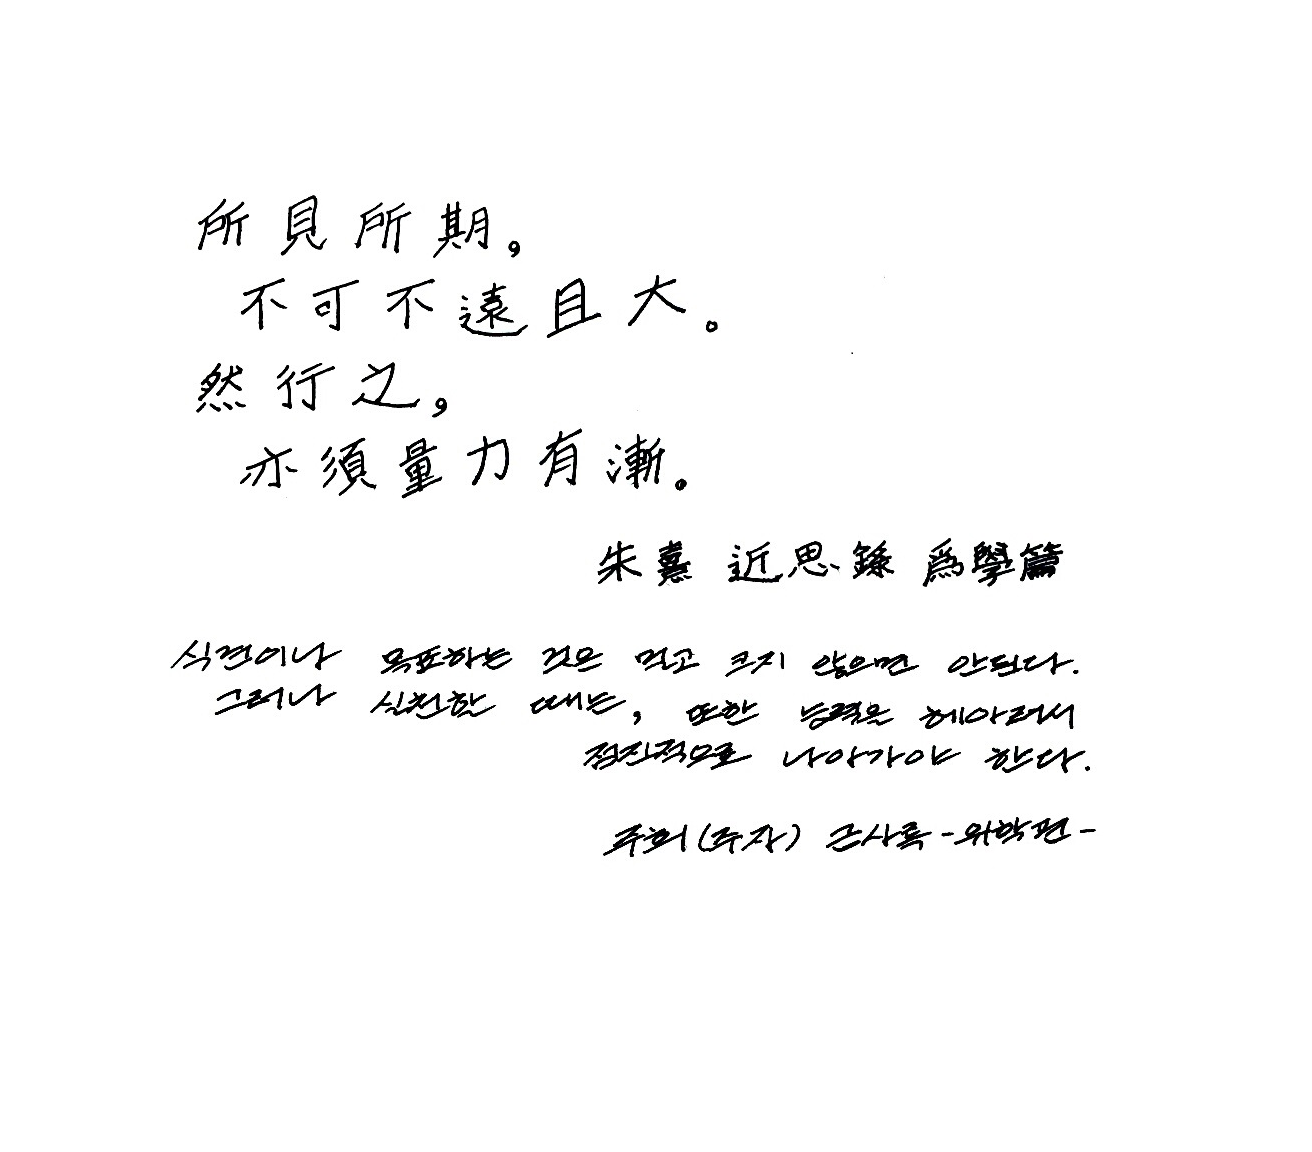 所見所期,
不可不遠且大。
然行之,
亦須量力有漸。
朱熹 近思錄 爲學篇
식견이나 목표하는 것은 멀고 크지 않으면 안된다.
그러나 실천할 때는, 또한 능력을 헤아려서
점진적으로 나아가야 한다.
주희(주자) 근사록 -위학편-